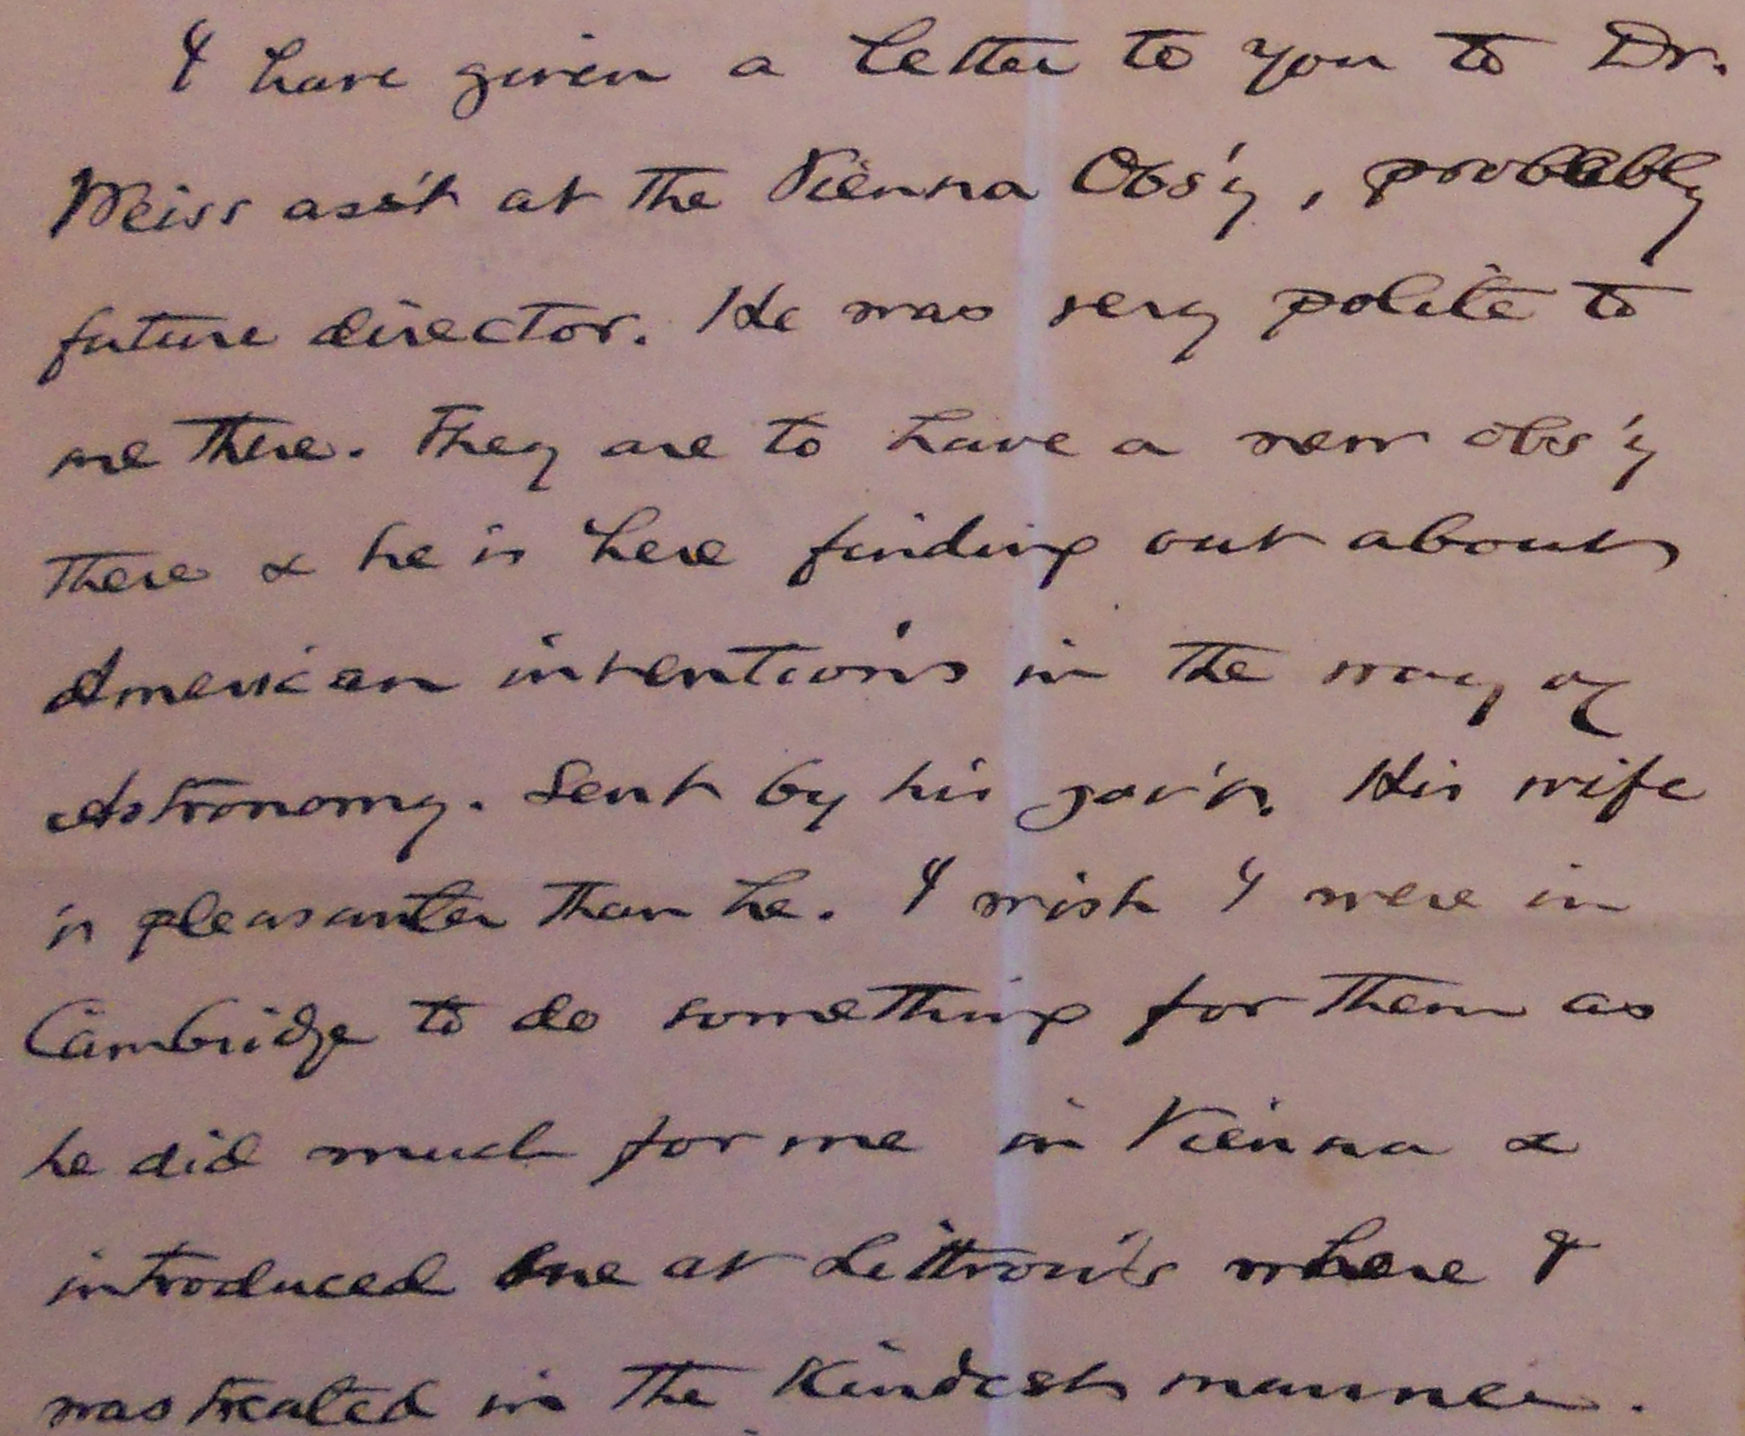 I have given a letter to you to Dr.
Weiss ass't at the Vienna Obs'y, probably
future director. He was very polite to
me there. They are to have a new obs'y
there & he is here finding out about
American intentions in the way of
Astronomy. Sent by his gov't. His wife
is pleasanter than he. I wish I were in
Cambridge to do something for them as
he did much for me in Vienna &
introduced me at Littrow's where I
was treated in the kindest manner.